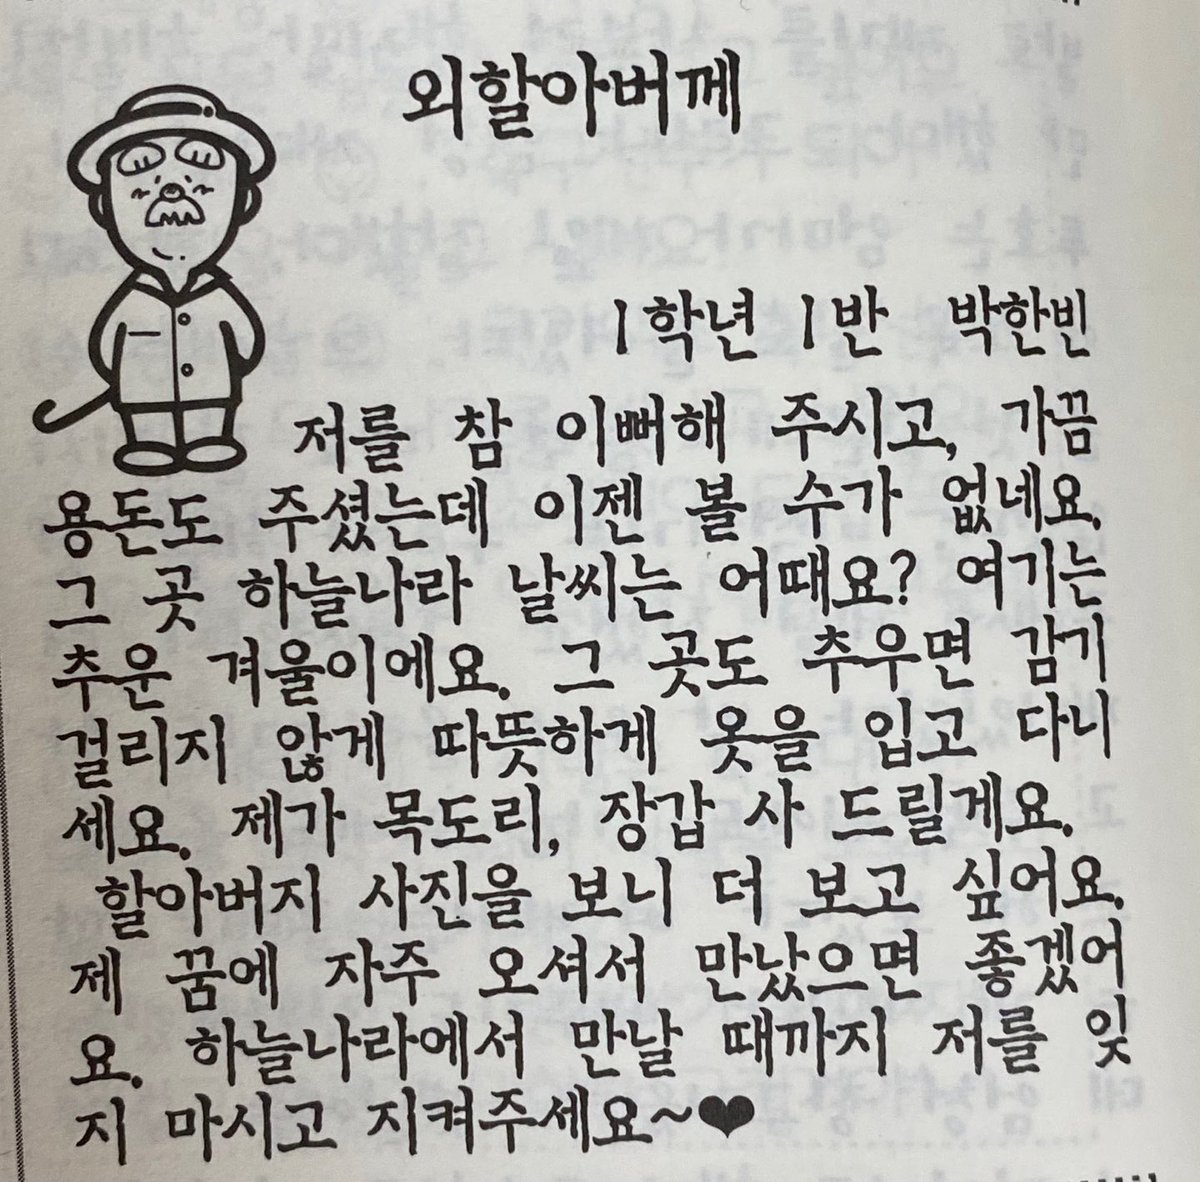 외할아버께
1학년 1반 박한빈
저를 참 이뻐해 주시고, 가끔
용돈도 주셨는데 이젠 볼 수가 없네요.
그 곳 하늘나라 날씨는 어때요? 여기는
추운 겨울이에요. 그 곳도 추우면 감기
걸리지 않게 따뜻하게 옷을 입고 다니
세요. 제가 목도리, 장갑 사 드릴게요.
할아버지 사진을 보니 더 보고 싶어요.
제 꿈에 자주 오셔서 만났으면 좋겠어
요. 하늘나라에서 만날 때까지 저를 잊
지 마시고 지켜주세요~♥